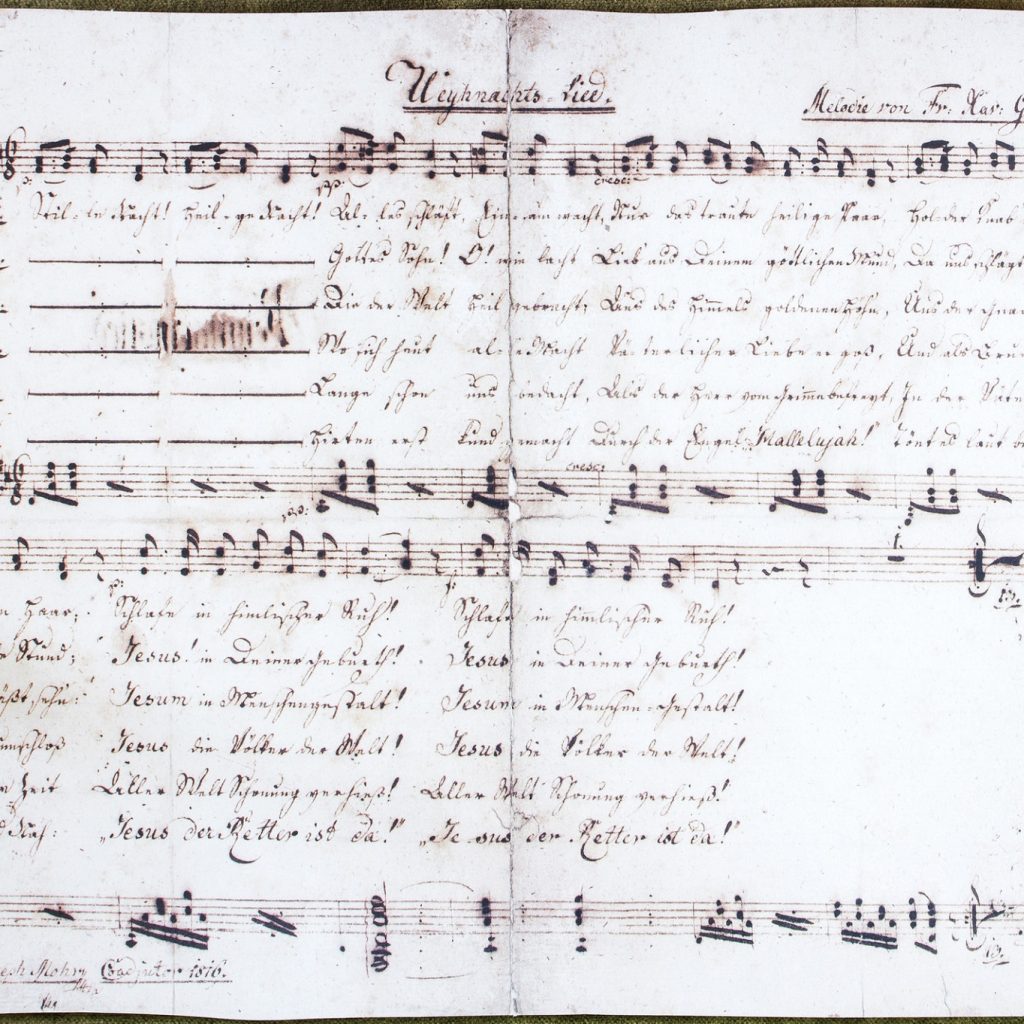 Weyhnachts-Lied.
Melodie von Fr: Xav: G
Stil-le Nacht! Heil-ge Nacht! Al-les schläft, Einsam wacht, Nur das traute heilige Paar, Holder Knab
Gottes Sohn! O! wie lacht Lieb aus Deinem göttlichen Mund, Da uns schlägt
Die der Welt Heil gebracht; Aus des Himmels goldenen Höhn, Uns der
Wo sich heut alle Macht Väterlicher Liebe ergoß, Und als
Lange schon uns bedacht, Als der Herr vom Grimme befreyt, In der Väter
Hirten erst kund gemacht Durch der Engel "Hallelujah!" Tönt es laut
cresc:
cresc:
n Haar; Schlafe in himlischer Ruh! Schlafe in himmlischer Ruh!
Stund; Jesus! in Deiner Geburth! Jesus in Deiner Geburth!
läßt sehn: Jesum in Menschengestalt! Jesum in Menschen-Gestalt!
umschloß Jesus die Völker der Welt! Jesus die Völker der Welt!
Zeit Aller Welt Schonung verhieß! Aller Welt Schonung verhieß!
d Nah: "Jesus der Retter ist da!" "Jesus der Retter ist da!"
eph Mohr Coadjutor 1816.